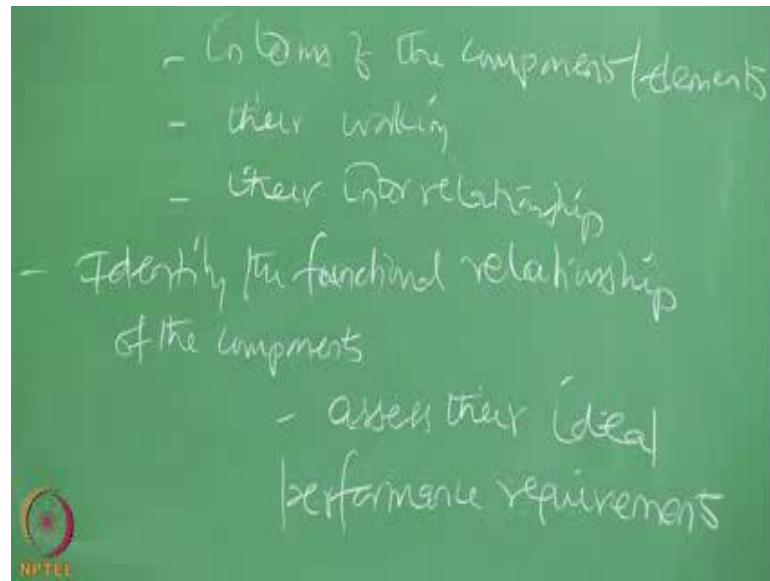 - In terms of the components/elements
- their working
- their interrelationship
- Identify the functional relationship
of the components
- assess their ideal
performance requirements
NPTEL